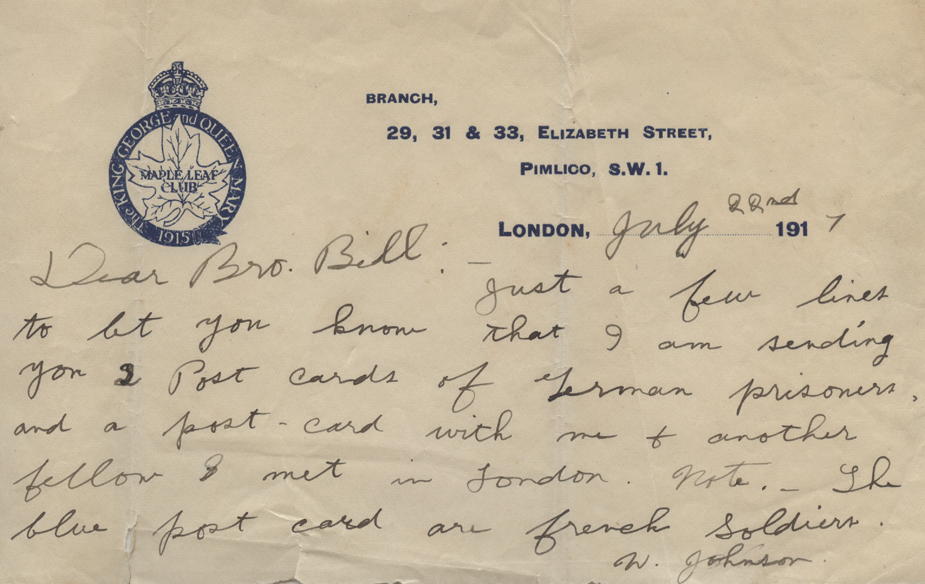 The KING GEORGE and QUEEN MARY
MAPLE LEAF
CLUB
1915
BRANCH,
29, 31 & 33, ELIZABETH STREET,
PIMLICO, S.W.1.
LONDON, July 22nd 1917
Dear Bro. Bill: —
Just a few lines
to let you know that I am sending
you 2 Post cards of German prisoners,
and a post-card with me & another
fellow I met in London. Note. — The
blue post card are french soldiers.
W. Johnson.